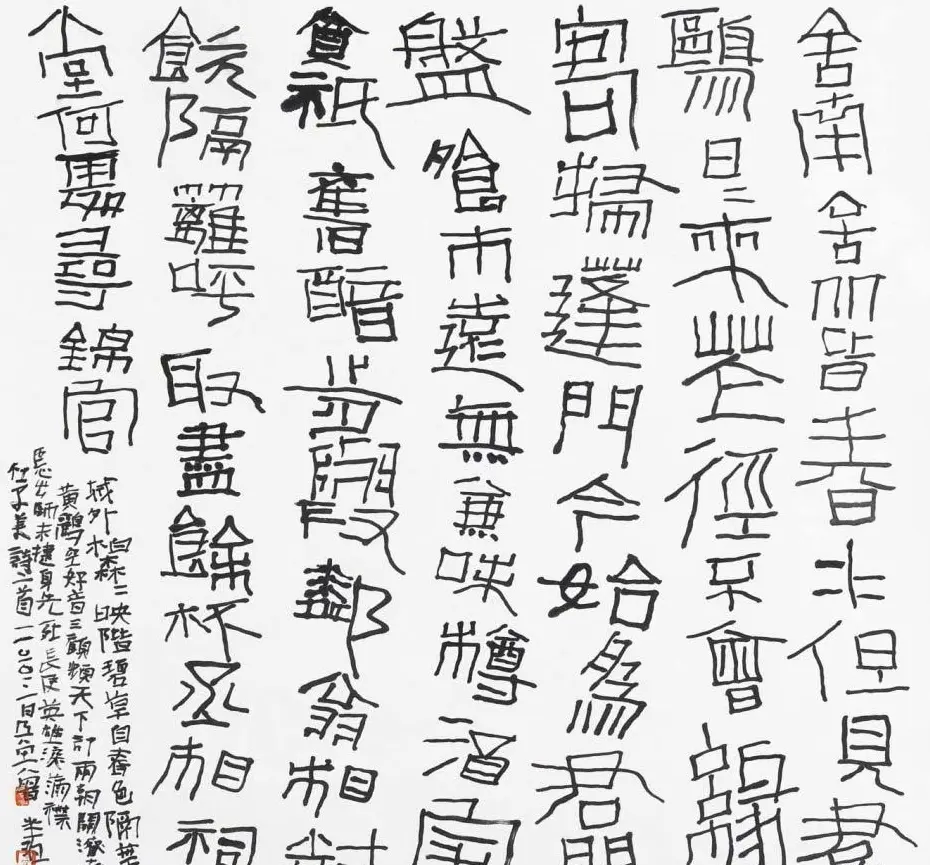 舍南舍北皆春水但見羣
鷗日二來花徑不曾緣
客掃蓬門今始為君開
盤飧市遠無兼味樽酒家
貧祇舊醅肯與鄰翁相對
飲隔籬呼取盡餘杯丞相祠
堂何處尋錦官
城外柏森二映階碧草自春色隔葉
黃鸝空好音三顧頻天下計兩朝開濟老
心出師未捷身先死長使英雄淚滿襟
杜子美詩二首